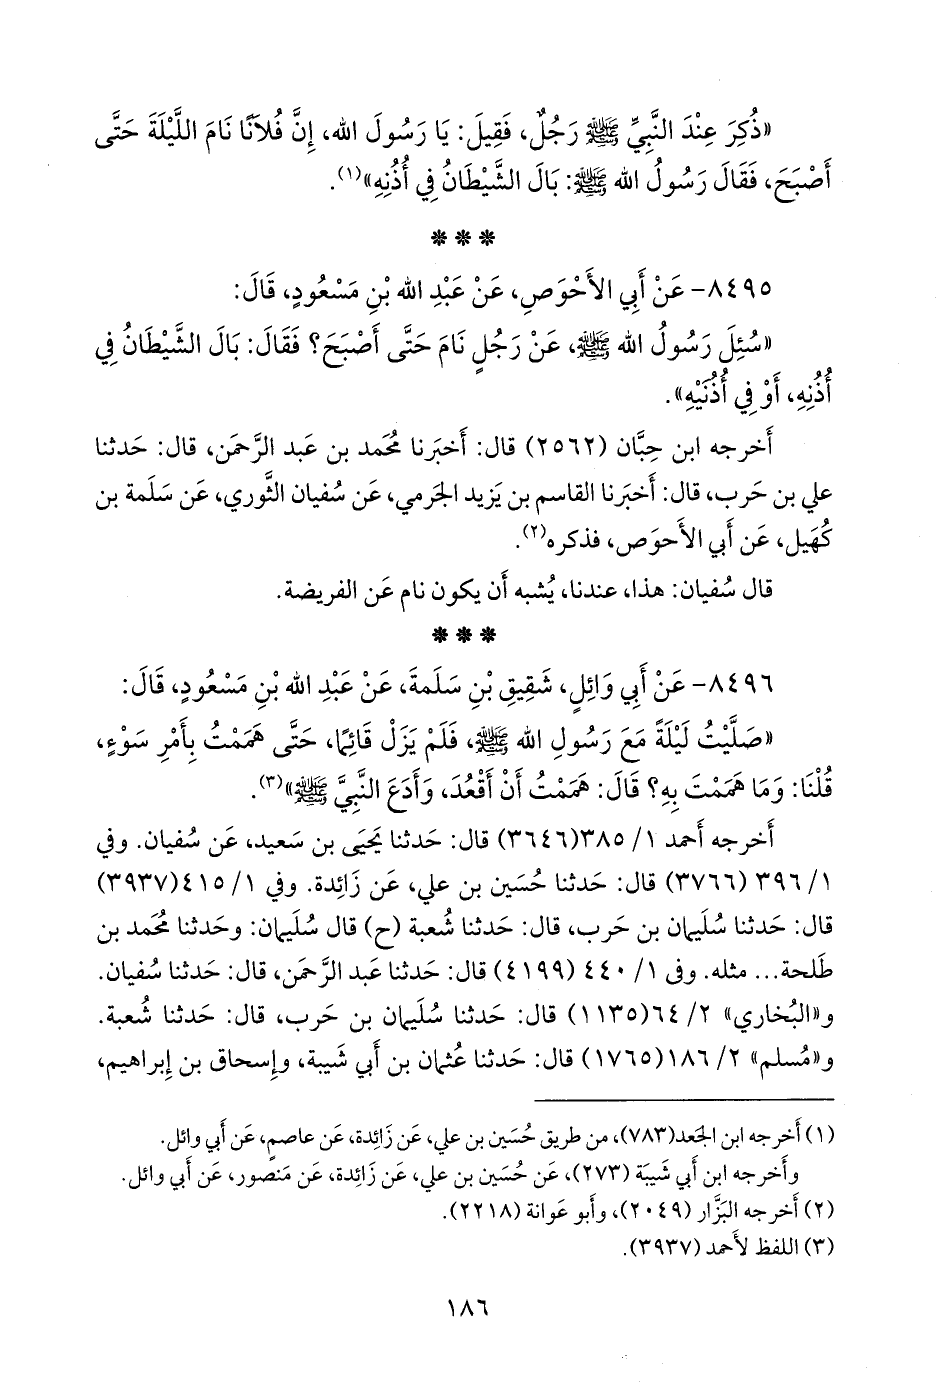 «ذُكِرَ عِنْدَ النَّبِيِّ ﷺ رَجُلٌ، فَقِيلَ: يَا رَسُولَ الله، إِنَّ فُلَانًا نَامَ اللَّيْلَةَ حَتَّى
أَصْبَحَ، فَقَالَ رَسُولُ الله ﷺ: بَالَ الشَّيْطَانُ فِي أُذُنِهِ»(١).
* * *
٨٤٩٥- عَنْ أَبِي الأَحْوَصِ، عَنْ عَبْدِ الله بْنِ مَسْعُودٍ، قَالَ:
«سُئِلَ رَسُولُ الله ﷺ، عَنْ رَجُلٍ نَامَ حَتَّى أَصْبَحَ؟ فَقَالَ: بَالَ الشَّيْطَانُ فِي
أُذُنِهِ، أَوْ فِي أُذُنَيْهِ».
أَخرجه ابن حِبَّان (٢٥٦٢) قال: أَخبَرنا مُحمد بن عَبد الرَّحمَن، قال: حَدثنا
علي بن حَرب، قال: أَخبَرنا القاسم بن يَزيد الجَرمي، عَن سُفيان الثَّوري، عَن سَلَمة بن
كُهَيل، عَن أَبي الأَحوَص، فذكره(٢).
قال سُفيان: هذا، عندنا، يُشبه أَن يكون نام عَن الفريضة.
* * *
٨٤٩٦- عَنْ أَبِي وَائِلٍ، شَقِيقِ بْنِ سَلَمَةَ، عَنْ عَبْدِ الله بْنِ مَسْعُودٍ، قَالَ:
«صَلَّيْتُ لَيْلَةً مَعَ رَسُولِ الله ﷺ، فَلَمْ يَزَلْ قَائِمًا، حَتَّى هَمَمْتُ بِأَمْرِ سَوْءٍ،
قُلْنَا: وَمَا هَمَمْتَ بِهِ؟ قَالَ: هَمَمْتُ أَنْ أَقْعُدَ، وَأَدَعَ النَّبِيَّ ﷺ»(٣).
أَخرجه أَحمد ١/ ٣٨٥(٣٦٤٦) قال: حَدثنا يَحيَى بن سَعيد، عَن سُفيان. وفي
١/ ٣٩٦ (٣٧٦٦) قال: حَدثنا حُسَين بن علي، عَن زَائِدة. وفي ١/ ٤١٥(٣٩٣٧)
قال: حَدثنا سُلَيمان بن حَرب، قال: حَدثنا شُعبة (ح) قال سُلَيمان: وحَدثنا مُحمد بن
طَلحة... مثله. وفى ١/ ٤٤٠ (٤١٩٩) قال: حَدثنا عَبد الرَّحمَن، قال: حَدثنا سُفيان.
و«البُخاري» ٢/ ٦٤(١١٣٥) قال: حَدثنا سُلَيمان بن حَرب، قال: حَدثنا شُعبة.
و«مُسلم» ٢/ ١٨٦(١٧٦٥) قال: حَدثنا عُثمان بن أَبي شَيبة، وإِسحاق بن إِبراهيم،
(١) أَخرجه ابن الجَعد(٧٨٣)، من طريق حُسَين بن علي، عَن زَائِدة، عَن عاصم، عَن أَبي وائل.
وأَخرجه ابن أَبي شَيبَة (٢٧٣)، عَن حُسَين بن علي، عَن زَائِدة، عَن مَنصور، عَن أَبي وائل.
(٢) أَخرجه البَزَّار (٢٠٤٩)، وأَبو عَوانة (٢٢١٨).
(٣) اللفظ لأَحمد (٣٩٣٧).
١٨٦